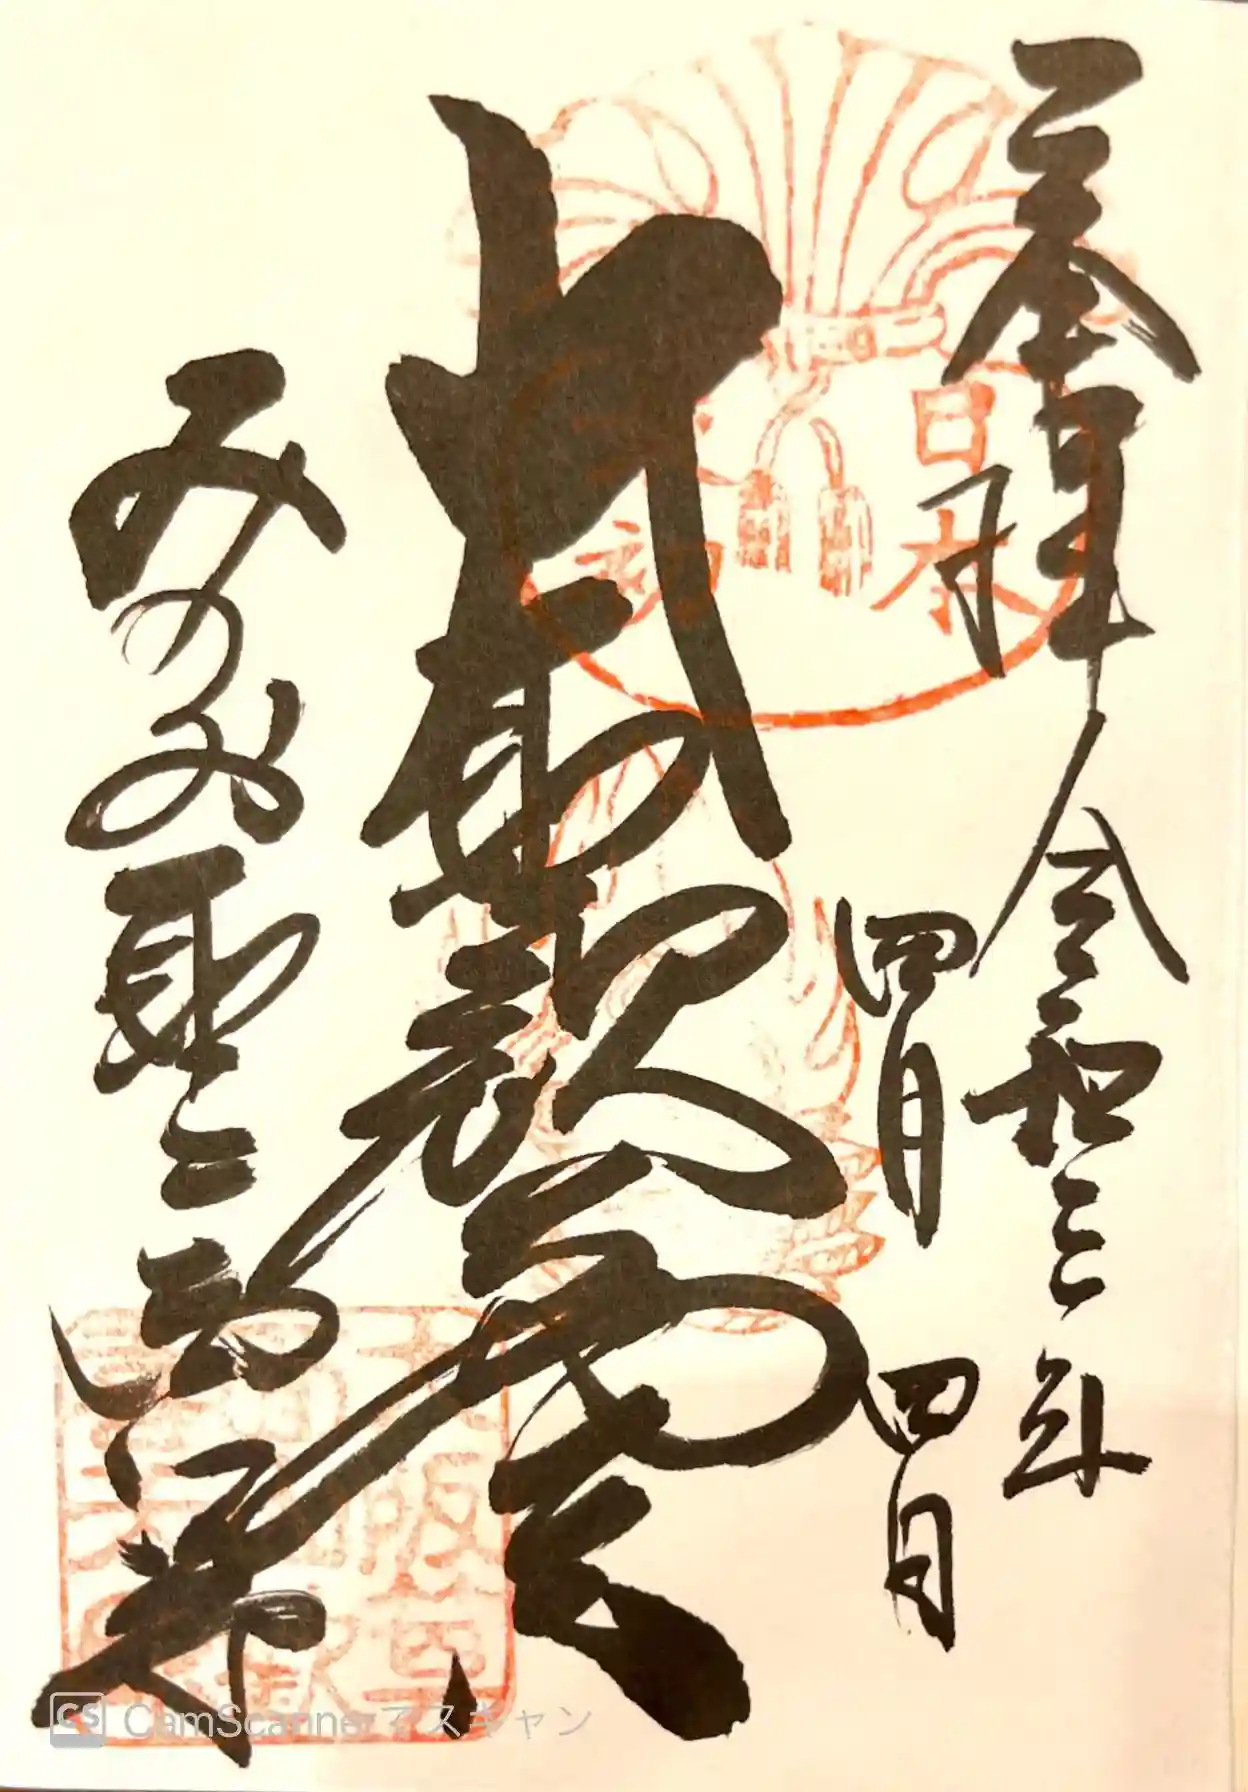 奉拝 令和三年
四月四日
大聖歓喜天
みのお聖天西江寺
日本
最初
CS CamScannerでスキャン